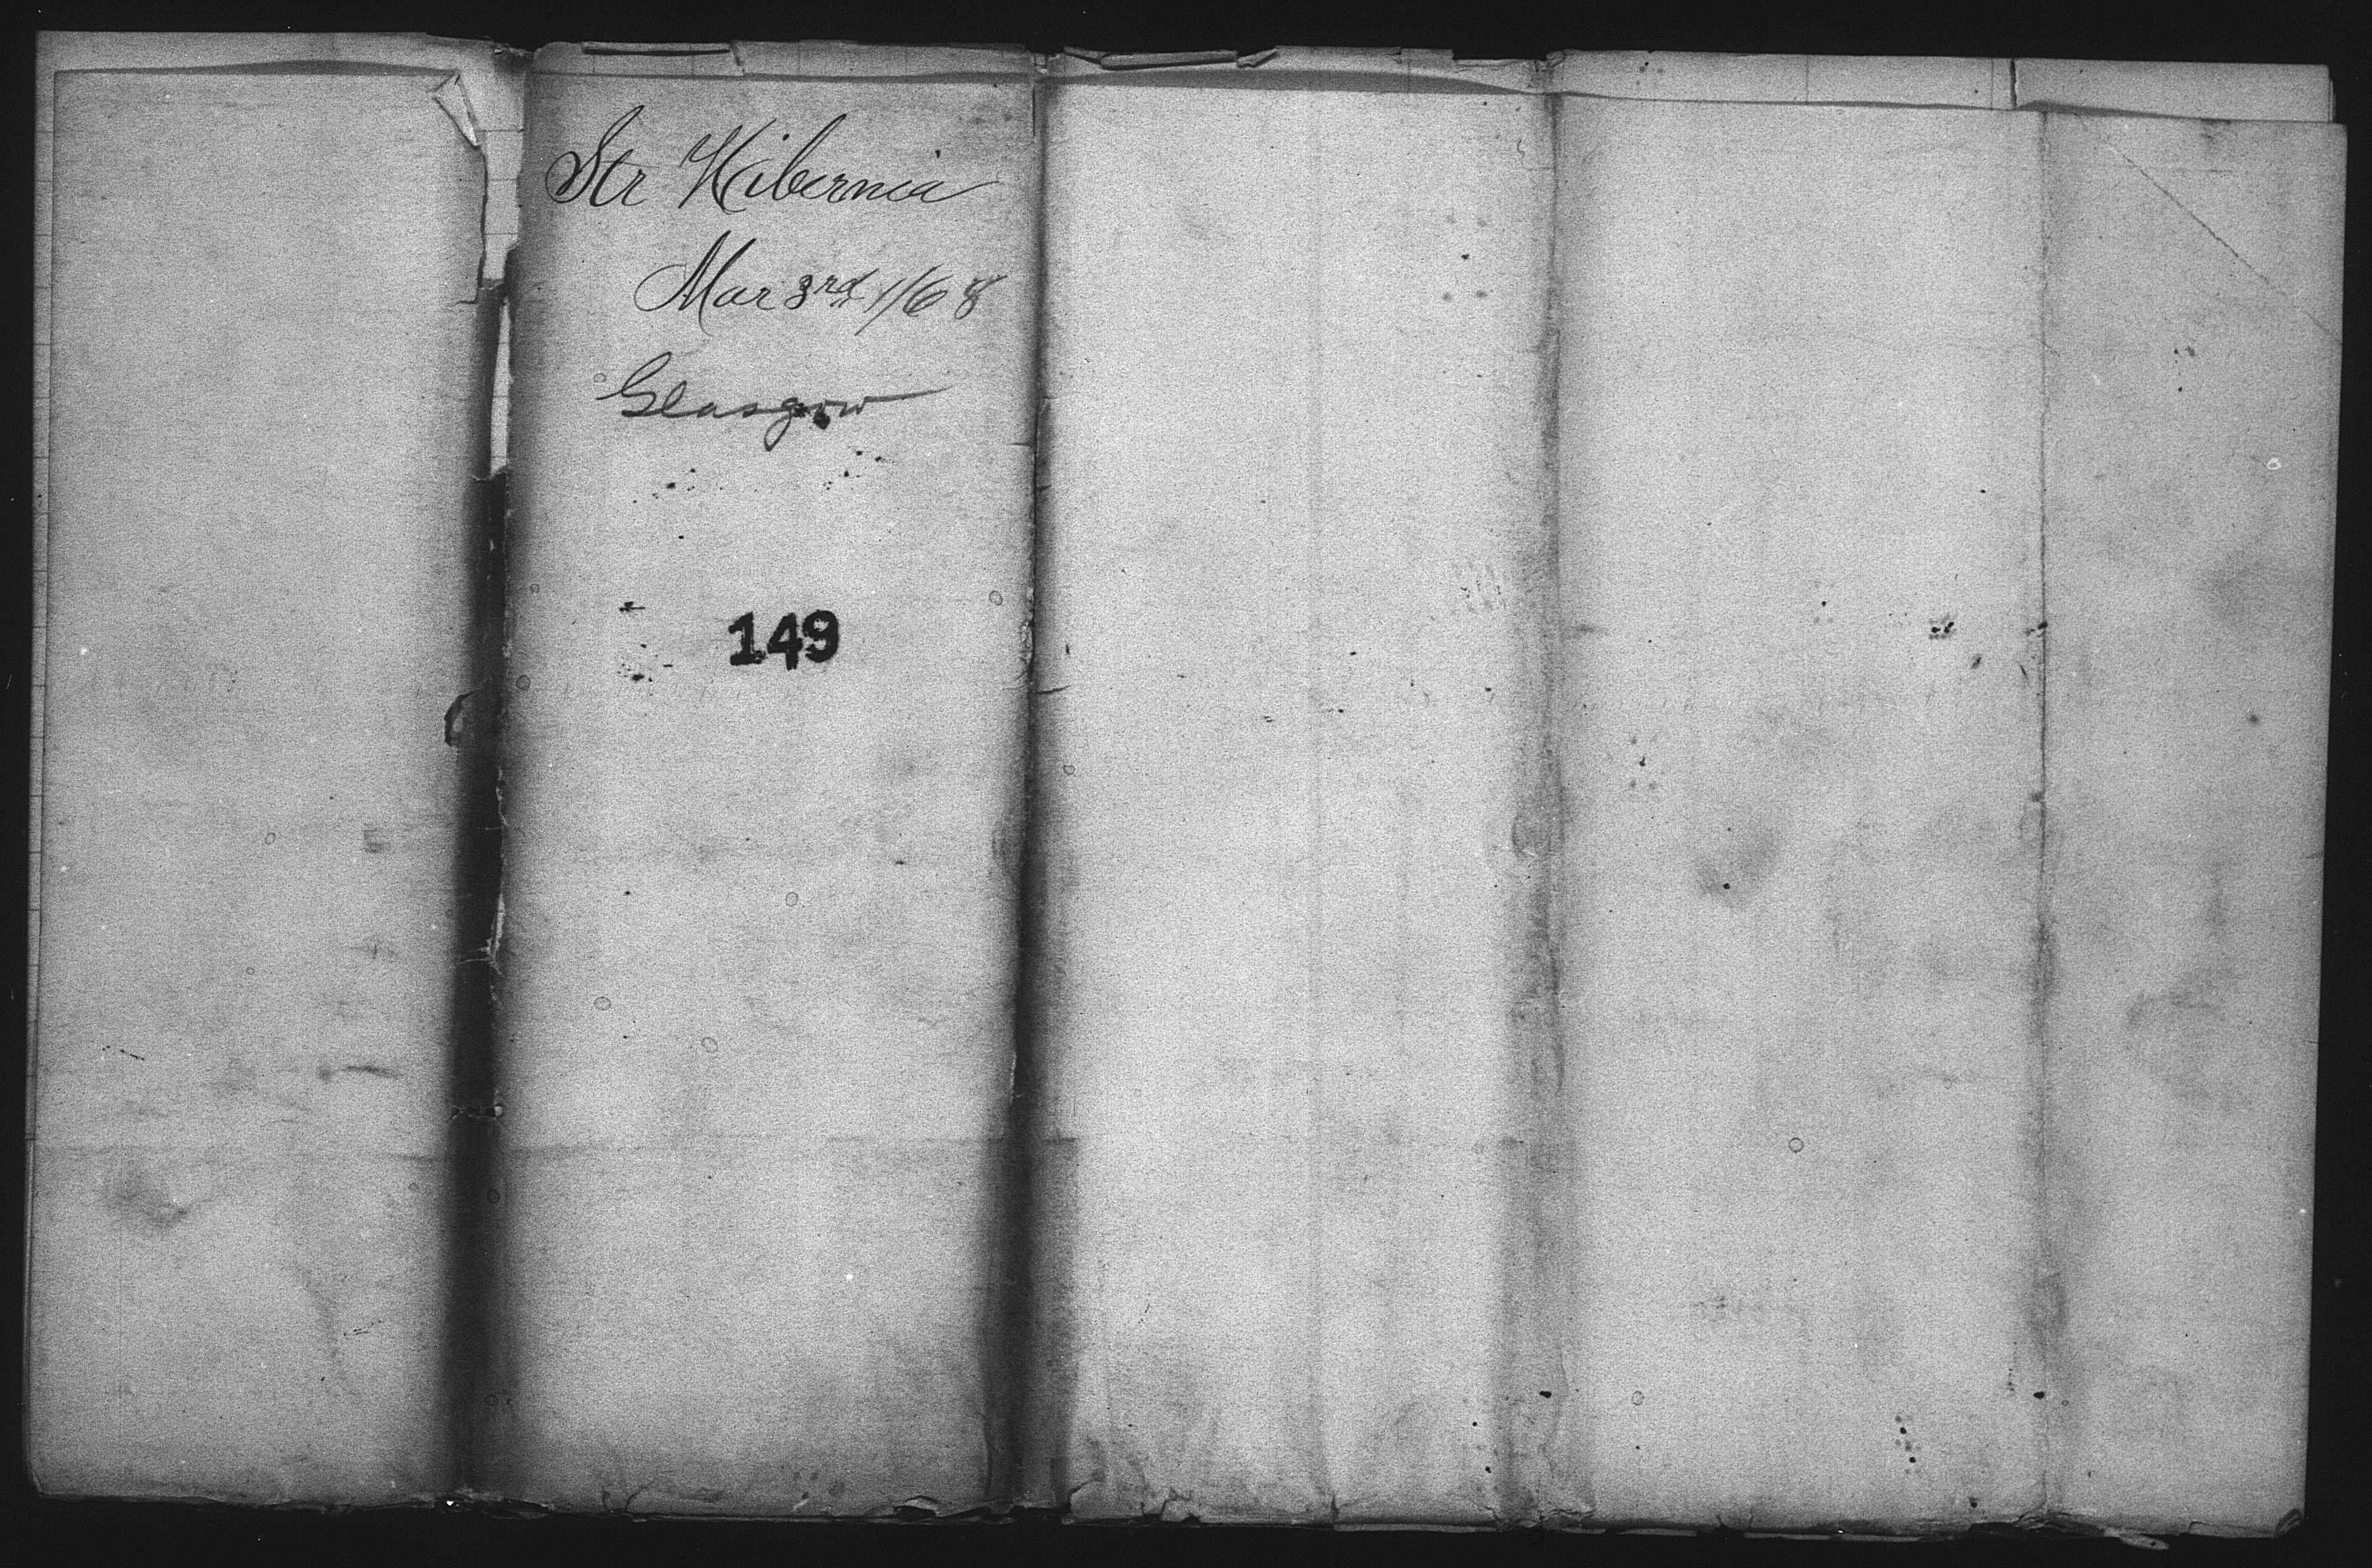 Str Hibernia
Mar 3rd /68
Glasgow
149